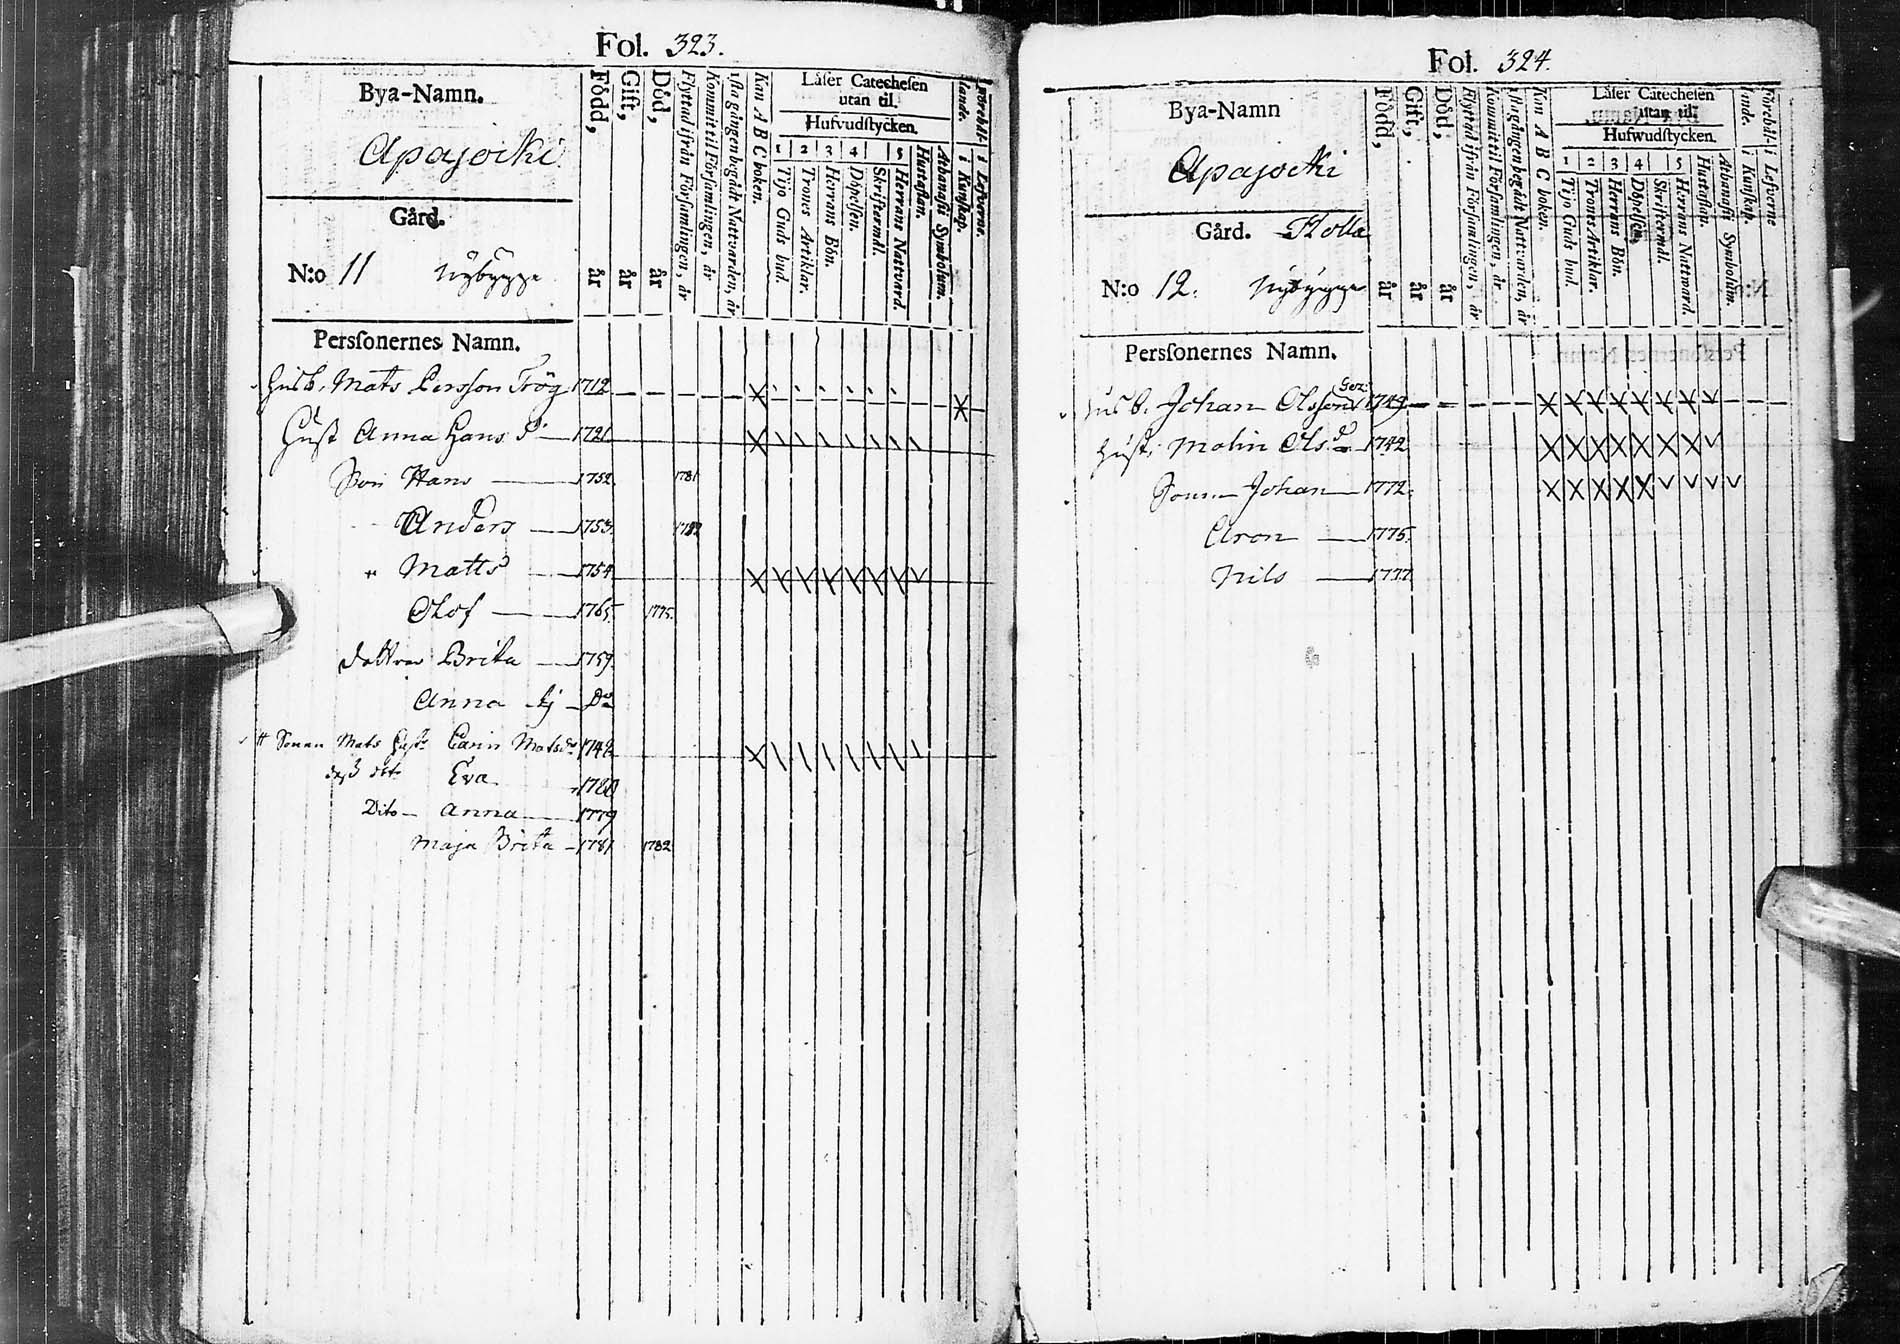 Fol. 323.
Bya-Namn.
Apajocki
Gård.
N:o 11 Nybygge
Persſonernes Namn.
Född, år
Gift, år
Död, år
Flyttad ifrån Förſamlingen, år
Kommit til Förſamlingen, år
1ſta gången begådt Nattvarden, år
Kan A B C boken.
Läſer Catecheſen
utan til.
Hufvudſtycken.
1 2 3 4 5
Tijo Guds bud.
Trones Artiklar.
Herrans Bön.
Döpelſen.
Skriftermål.
Herrans Nattvard.
Huſtaflan.
Athanaſii Symbolum.
Förehål-
lande.
i Kunſkap.
i Lefverne.
Husb. Mats Persson Trög 1712
Hust Anna Hans D 1721
Son Hans 1752. 1781
Anders 1753. 1782
" Matts 1754
Olof 1765. 1775.
Dottrar Brita 1759.
Anna Do
# Sonen Mats Hustr Carin Matsdr 1742
dess dotr Eva 1780
Dito Anna 1779
Maja Brita 1781 1782
Fol. 324.
Bya-Namn
Apajocki
Gård. Kolla
N:o 12. Nybygge
Persſonernes Namn.
Född, år
Gift, år
Död, år
Flyttad ifrån Förſamlingen, år
Kommit til Förſamlingen, år
1ſta gången begådt Nattvarden, år
Kan A B C boken.
Läſer Catecheſen
utan til.
Hufwudſtycken.
1 2 3 4 5
Tijo Guds bud.
Trones Artiklar.
Herrans Bön.
Döpelſen.
Skriftermål.
Herrans Nattward.
Huſtaflan.
Athanaſii Symbolum.
Förehål-
lande.
i Kunſkap.
i Lefverne
Husb. Johan Olsson 1749
Hust: Malin Ols. d 1742
Sonen Johan 1772.
Aron 1775.
Nils 1777